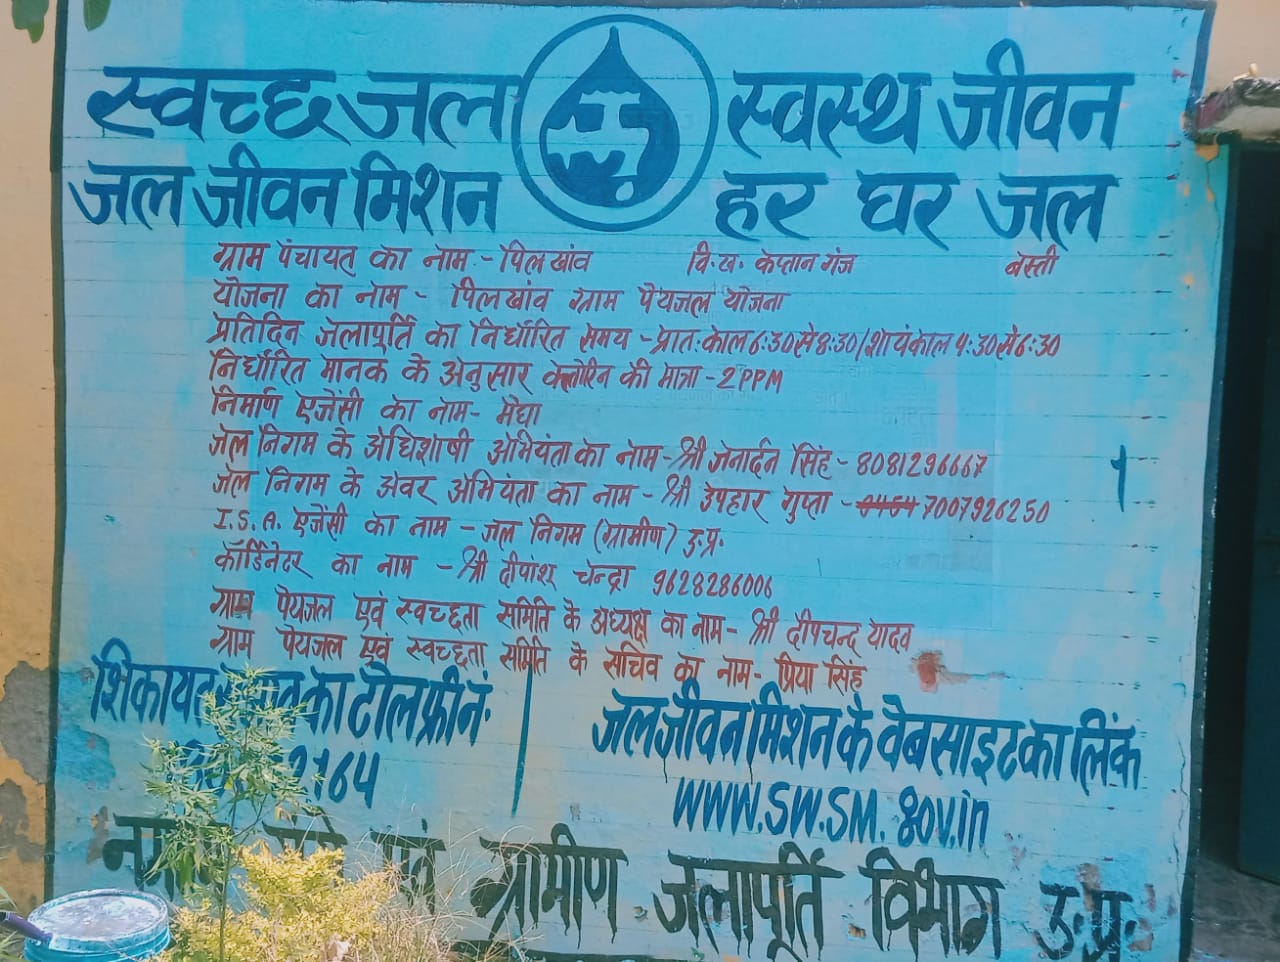 स्वच्छ जल स्वस्थ जीवन
जल जीवन मिशन हर घर जल
ग्राम पंचायत का नाम - पिलखांव वि.ख. केप्तान गंज बस्ती
योजना का नाम - पिलखांव ग्राम पेयजल योजना
प्रतिदिन जलापूर्ति का निर्धारित समय - प्रात:काल 6:30 से 8:30/शायंकाल 4:30 से 6:30
निर्धारित मानक के अनुसार क्लोरिन की मात्रा - 2PPM
निर्माण एजेंसी का नाम - मेघा
जल निगम के अधिशाषी अभियंता का नाम - श्री जनार्दन सिंह - 8081296667
जल निगम के अवर अभियंता का नाम - श्री उपहार गुप्ता - 7007926250
I.S.A. एजेंसी का नाम - जल निगम (ग्रामीण) उ.प्र.
कॉर्डिनेटर का नाम - श्री दीपांश चन्द्रा 9628286006
ग्राम पेयजल एवं स्वच्छता समिति के अध्यक्ष का नाम - श्री दीपचन्द यादव
ग्राम पेयजल एवं स्वच्छता समिति के सचिव का नाम - प्रिया सिंह
शिकायत का टोल फ्री नं.
2164
जल जीवन मिशन के वैबसाइट का लिंक
WWW.SW.SM.gov.in
एवं ग्रामीण जलापूर्ति विभाग उ.प्र.